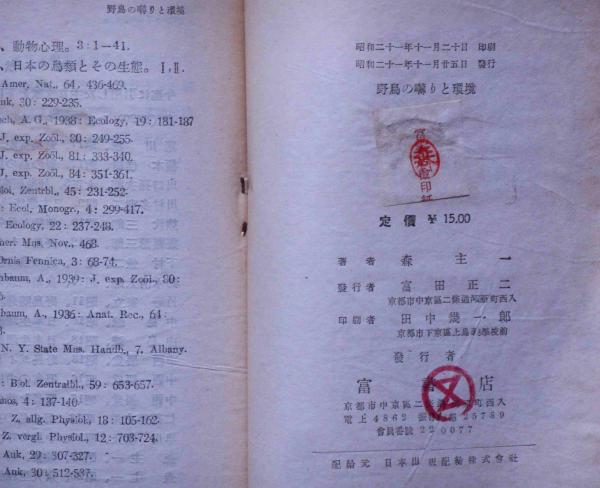 野鳥の囀りと環境
、動物心理。3:1—41.
、日本の鳥類とその生態。I,II.
Amer, Nat., 64, 436-469.
uk, 30: 229-235.
ech, A. G., 1938: Ecology, 19: 181-187
J. exp. Zoöl., 80: 249-255.
J. exp. Zoöl., 81: 333-340.
J. exp. Zoöl., 84: 351-361.
Biol. Zentrbl., 45: 231-252
: Ecol. Monogr., 4: 299-417.
Ecology, 22: 237-248.
mer: Mus. Nov., 468.
Ornis Fennica, 3: 68-74.
nbaum, A., 1939: J. exp. Zoöl., 80:
nbaum, A., 1936: Anat. Rec., 64:
N. Y. State Mus. Handb., 7. Albany.
: Biol. Zentralbl., 59: 653-657.
nos, 4: 137-140
Z. allg. Physiol., 18: 105-162.
Z. vergl. Physiol., 12: 703-724.
Auk, 29: 307-327.
Auk, 30: 512-537.
昭和二十一年十一月二十日 印刷
昭和二十一年十一月廿五日 發行
野鳥の囀りと環境
富
印紙
定價 ¥ 15.00
著者 森主一
發行者 富田正二
京都市中京區二條通河原町西入
印刷者 田中幾一郎
京都市下京區上鳥羽
發行者
富書店
京都市中京區二條 町西入
電上4862 25789
會員番號 220077
配給元 日本出版配給株式會社